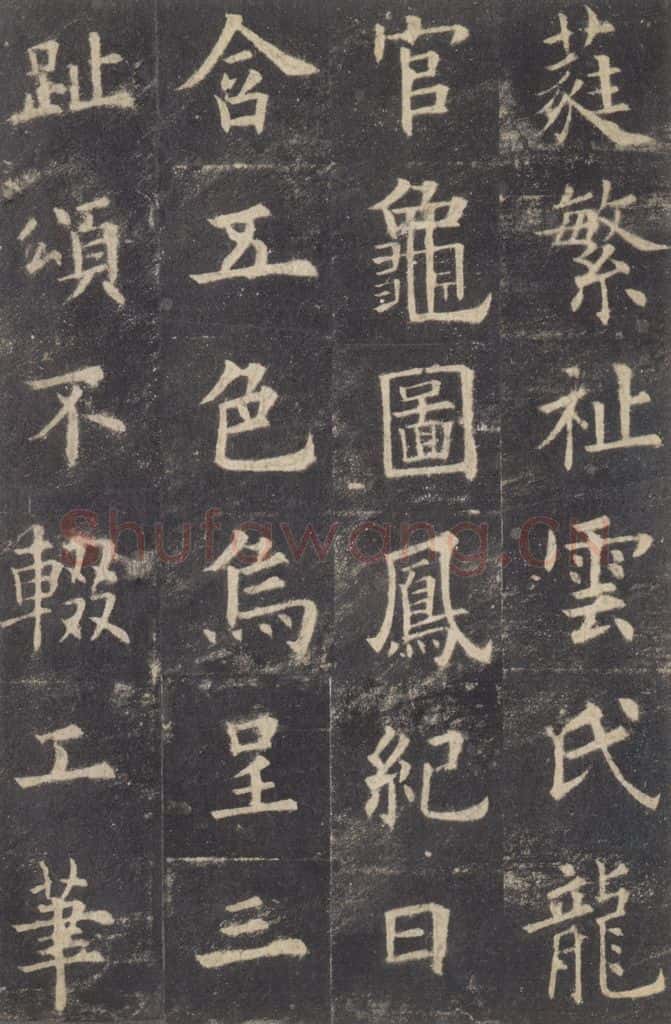 蕤繁祉雲氏龍
官龜圖鳳紀日
含五色烏呈三
趾頌不輟工筆
Shufawang.CN